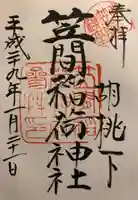 奉拝
胡桃下
笠間稲荷神社
平成二十九年一月二十一日